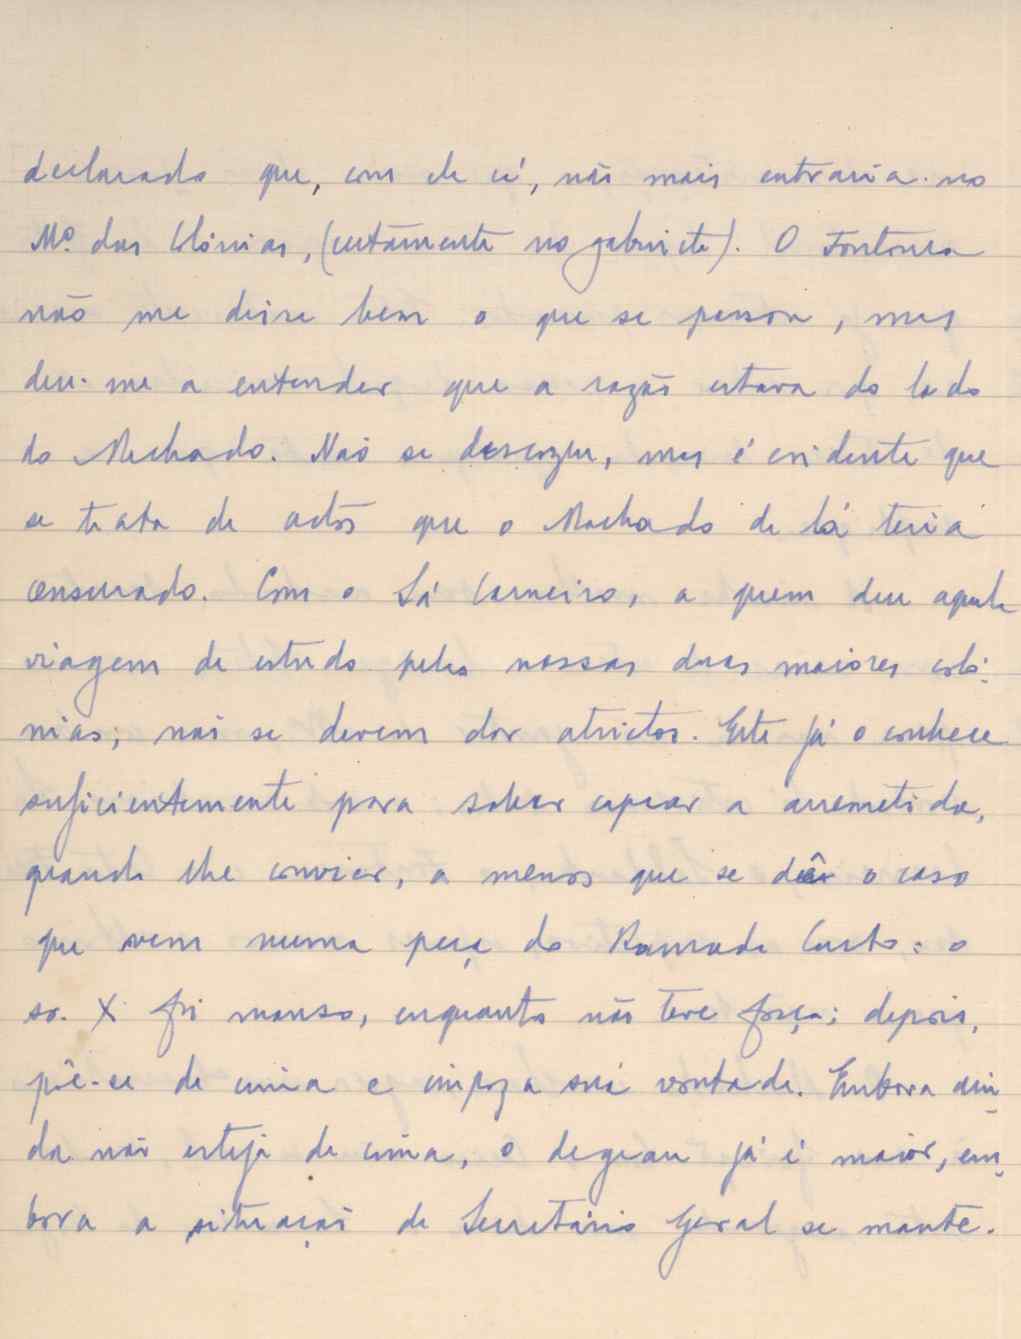 declarado que, com ele cá, não mais entraria no
Mº das Colónias, (certamente no gabinete). O Fontoura
não me disse bem o que se passou, mas
deu-me a entender que a razão estava do lado
do Machado. Não se descozeu, mas é evidente que
se trata de actos que o Machado de lá teria
censurado. Com o Sá Carneiro, a quem deu aquela
viagem de estudo pelas nossas duas maiores coló-
nias, não se devem dar atrictos. Este já o conhece
suficientemente para saber capear a arremetida,
quando lhe convier, a menos que se dê o caso
que vem numa peça do Ramada Curto: o
sr. X foi manso, enquanto não teve força; depois,
põe-se de cima e impoz a sua vontade. Embora ain-
da não esteja de cima, o degrau já é maior, em-
bora a situação de Secretário Geral se mante-